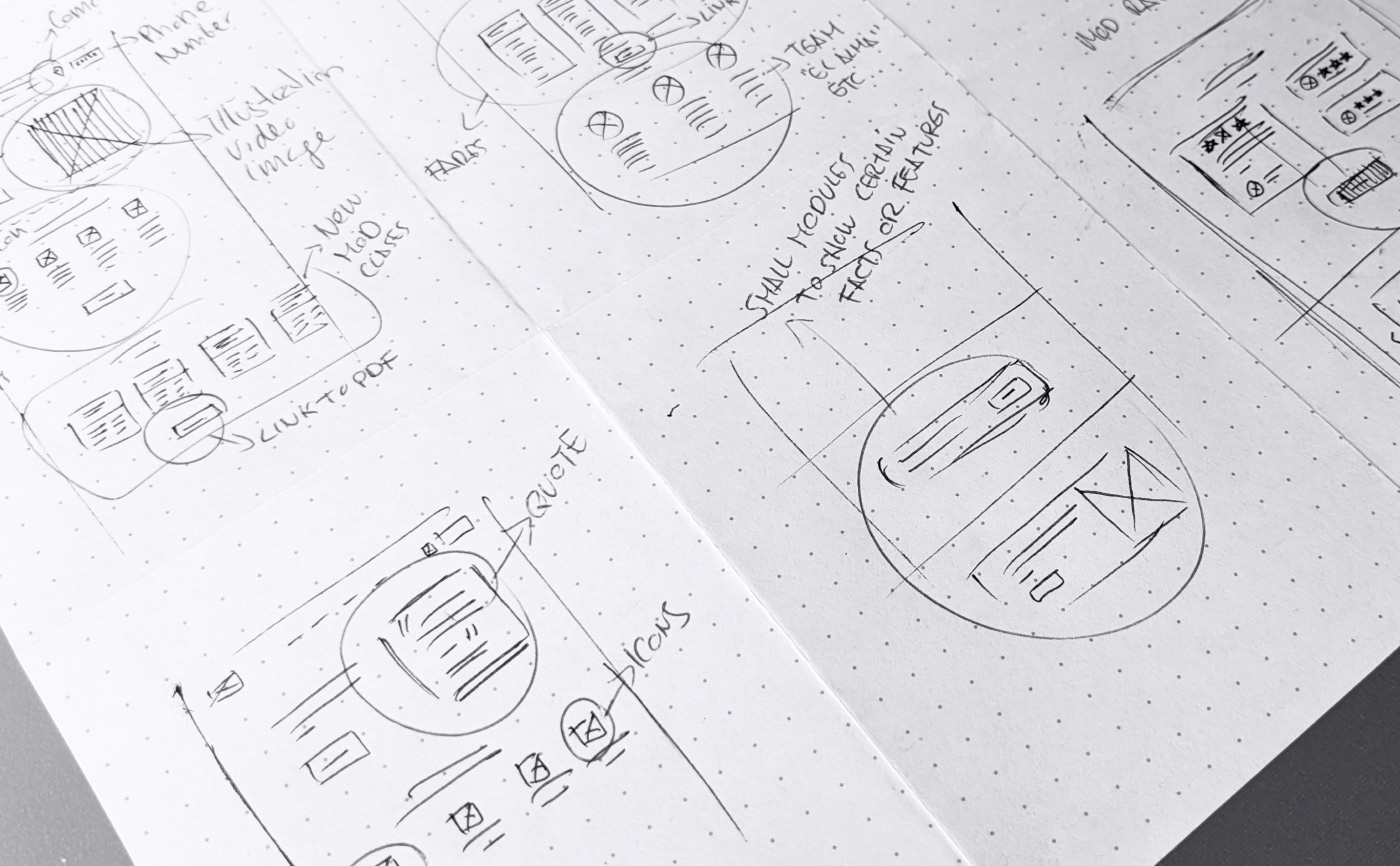 Phone
Number
Illustration
Video
image
New
MoD
CASES
LINK TO PDF
LINK
TEAM
ETC..
SMALL MODULES
TO SHOW CERTAIN
FACTS OR FEATURES
QUOTE
ICONS
MoD